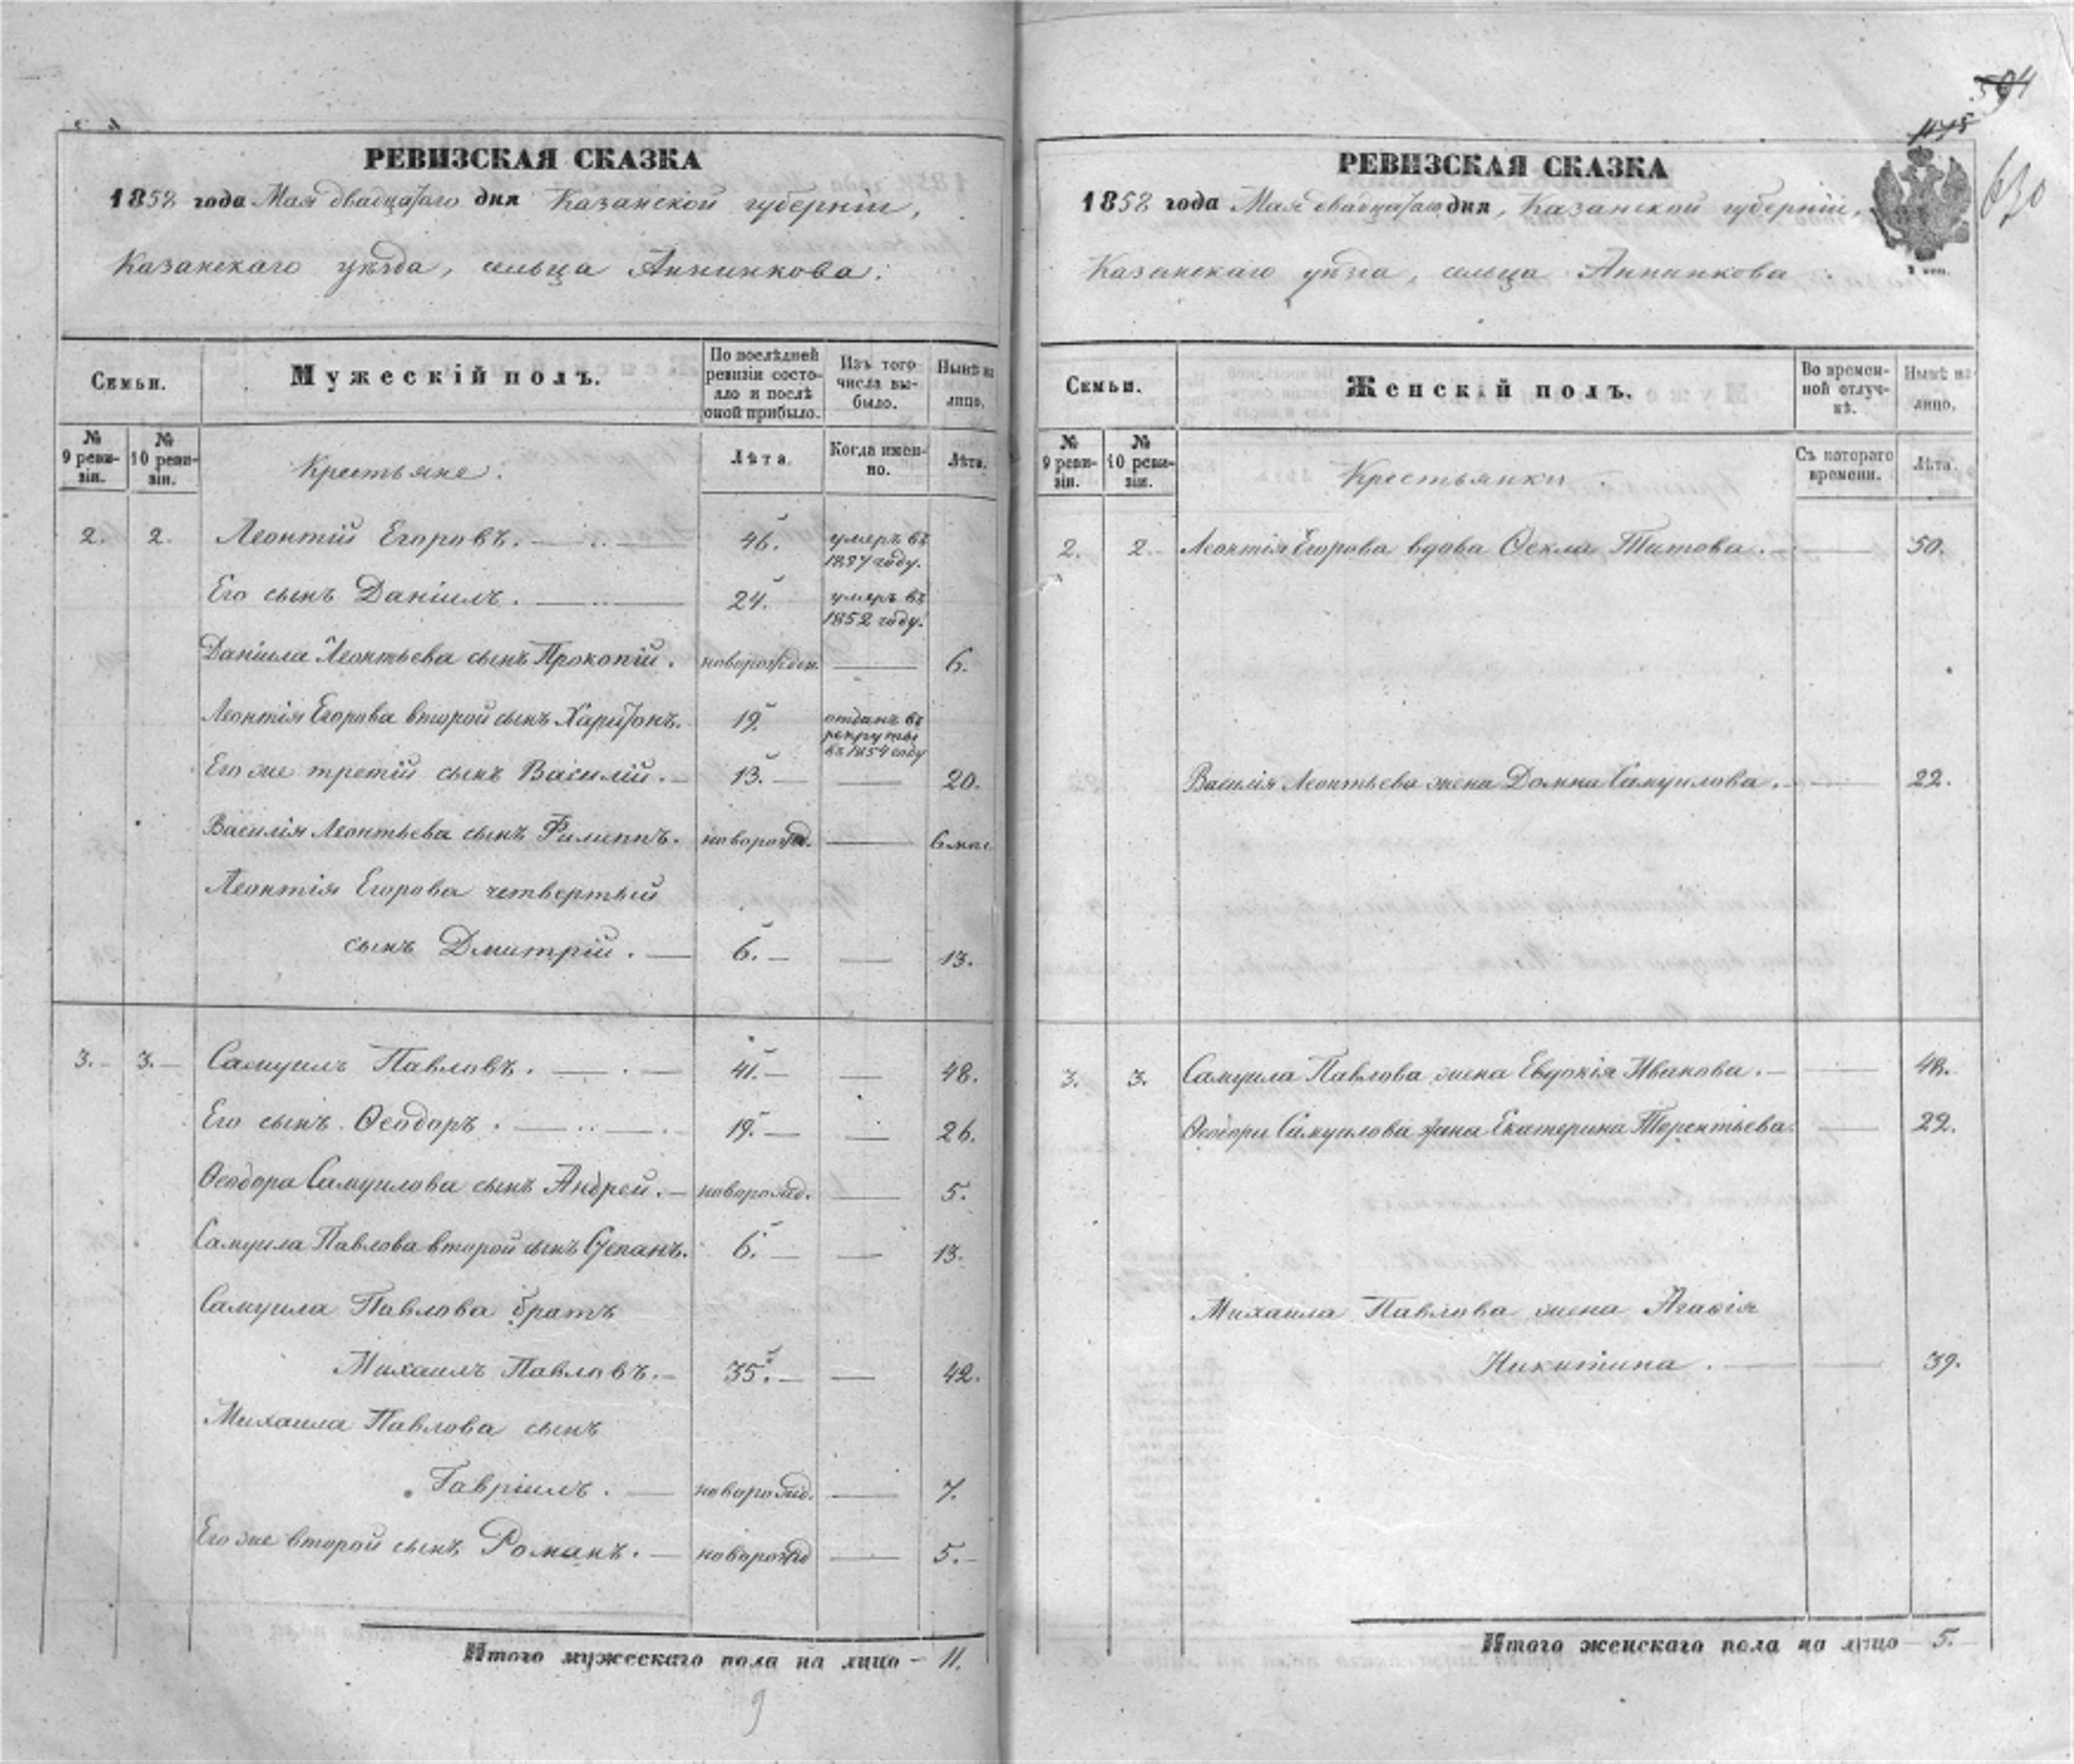 РЕВИЗСКАЯ СКАЗКА
1858 года Мая двадцатаго дня Казанской губерніи,
Казанскаго уѣзда, сельца Аннинкова.
Семьи.
Мужескій полъ.
По послѣдней ревизіи состояло и послѣ оной прибыло.
Изъ того числа выбыло.
Нынѣ на лицо.
№ 9 ревизіи.
№ 10 ревизіи.
Крестьяне.
Лѣта.
Когда именно.
Лѣта.
2. 2. Леонтій Егоровъ. 46. умеръ въ 1857 году.
Его сынъ Даніилъ. 24. умеръ въ 1852 году.
Даніила Леонтьева сынъ Прокопій. новорожден. 6.
Леонтія Егорова второй сынъ Харитонъ. 19. отданъ въ рекруты въ 1854 году
Его же третій сынъ Василій. 13. 20.
Василія Леонтьева сынъ Филиппъ. новорожд. 6 мес.
Леонтія Егорова четвертый
сынъ Дмитрій. 6. 13.
3. 3. Самуилъ Павловъ. 41. 48.
Его сынъ Ѳеодоръ. 19. 26.
Ѳеодора Самуилова сынъ Андрей. новорожд. 5.
Самуила Павлова второй сынъ Степанъ. 6. 13.
Самуила Павлова братъ
Михаилъ Павловъ. 35. 42.
Михаила Павлова сынъ
Гавріилъ. новорожд. 7.
Его же второй сынъ Романъ. новорожд 5.
Итого мужескаго пола на лицо 11.
9
594
1175
630
РЕВИЗСКАЯ СКАЗКА
1858 года Мая двадцатаго дня, Казанской губерніи,
Казанскаго уѣзда, сельца Аннинкова
Семьи.
Женскій полъ.
Во временной отлучкѣ.
Нынѣ на лицо.
№ 9 ревизіи.
№ 10 ревизіи.
Крестьянки.
Съ котораго времени.
Лѣта.
2. 2. Леонтія Егорова вдова Ѳекла Титова. 50.
Василія Леонтьева жена Домна Самуилова. 22.
3. 3. Самуила Павлова жена Евдокія Иванова. 48.
Ѳеодора Самуилова жена Екатерина Терентьева. 22.
Михаила Павлова жена Агафія
Никитина. 39.
Итого женскаго пола на лицо 5.